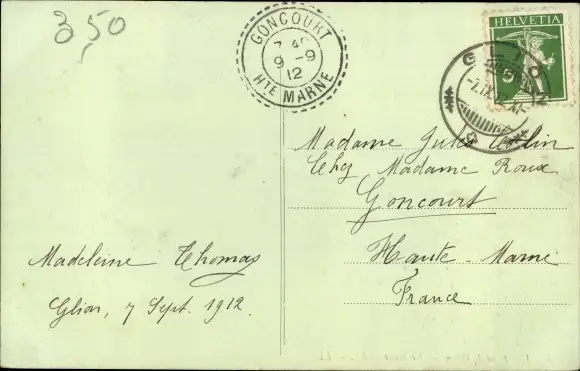 3,50
GONCOURT
9-9
12
HTE MARNE
HELVETIA
Madame Jules
Chez Madame Roux
Goncourt
Haute-Marne
France
Madeleine Thomas
Glion, 7 Sept. 1912.